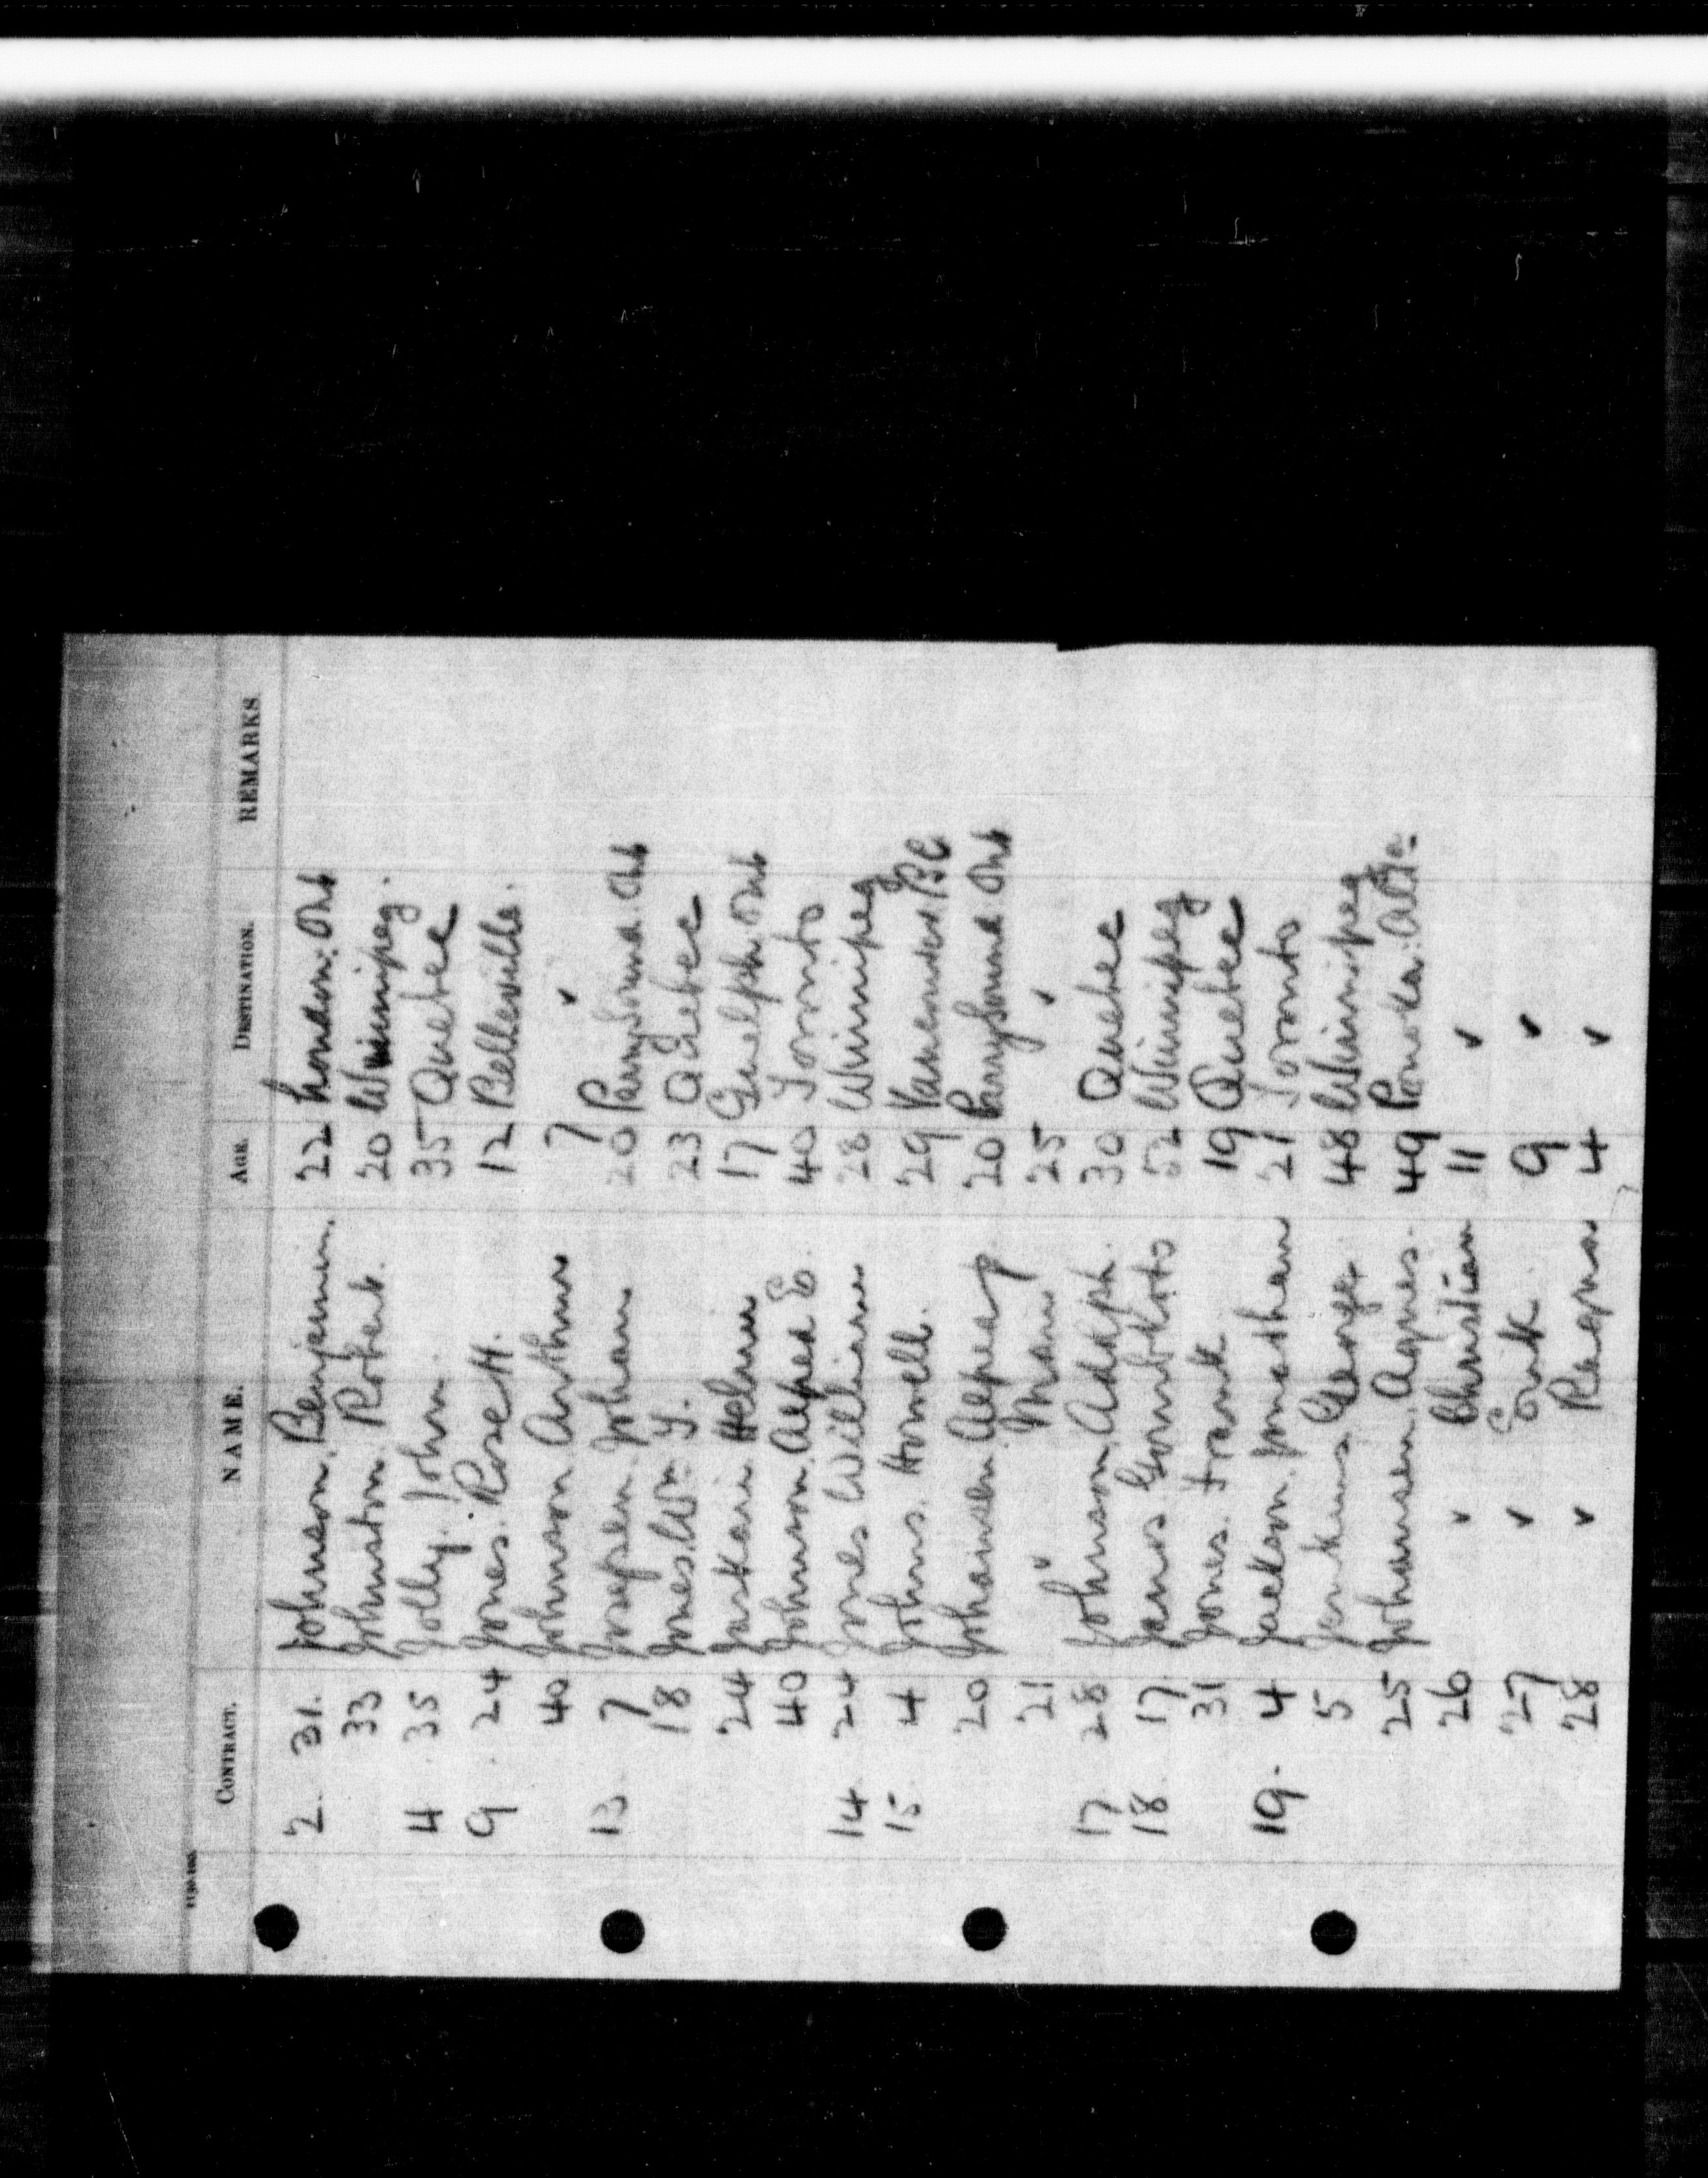 CONTRACT. NAME. AGE. DESTINATION. REMARKS
2. 31. Johnson. Benjamin. 22 London. Ont
33 Johnston. Robert. 20 Winnipeg.
4 35 Jolly. John. 35 Quebec
9 24 Jones. Rose H. 12 Belleville.
40 Johnson Arthur 7 ✓
13 7 Josepsen. Johan 20 Parry Sound. Ont
18 Jones. Wm Y. 23 Quebec
24 Jaskari Helmi 17 Guelph Ont
40 Johnson. Alfred E. 40 Toronto
14 24 Jones William 28 Winnipeg
15 4 Johns. Howell. 29 Vancouver BC
20 Johansen. 20 Parry Sound Ont
21 " 25 ✓
17 28 Johnson. Adolph. 30 Quebec
18 17 52 Winnipeg
31 Jones. Frank 19 Quebec
19. 4 Jackson. Jonathan 27 Toronto
5 Jenkins George 48 Winnipeg
25 Johansen. Agnes. 49 Ponoka. Alta
26 ✓ Christian 11 ✓
27 ✓ Erik. 9 ✓
28 ✓ Ragna 4 ✓